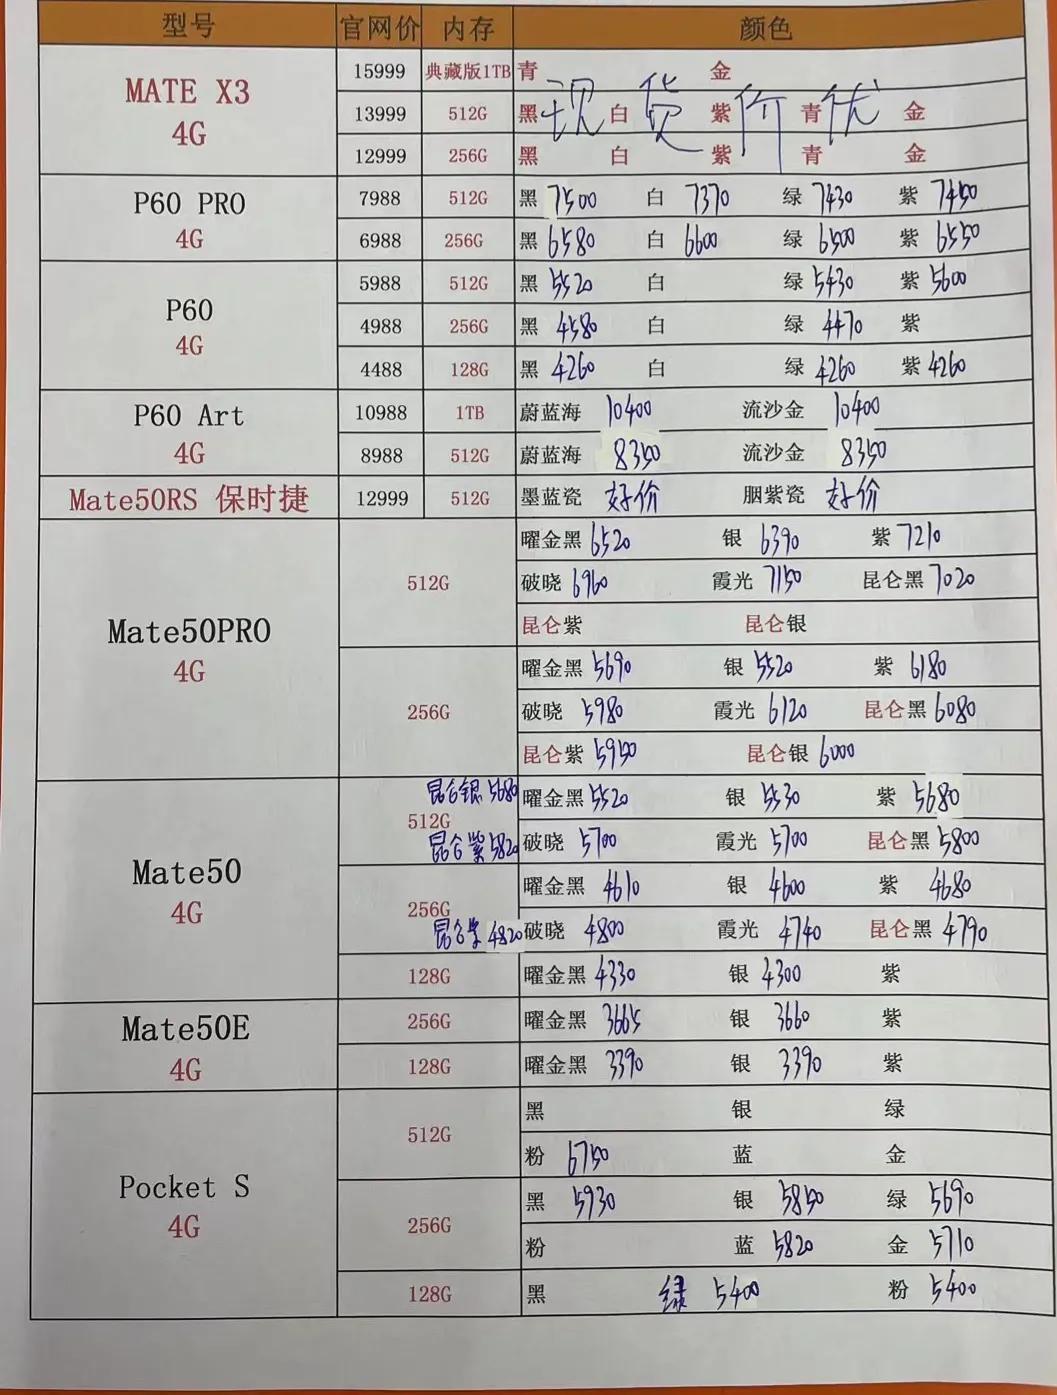 型号 官网价 内存 颜色
MATE X3 4G
15999 典藏版1TB 青 金
13999 512G 黑 白 紫 青 金
现货价优
12999 256G 黑 白 紫 青 金
P60 PRO 4G
7988 512G 黑 7500 白 7370 绿 7430 紫 7450
6988 256G 黑 6580 白 6600 绿 6500 紫 6550
P60 4G
5988 512G 黑 5520 白 绿 5430 紫 5600
4988 256G 黑 4580 白 绿 4470 紫
4488 128G 黑 4260 白 绿 4260 紫 4260
P60 Art 4G
10988 1TB 蔚蓝海 10400 流沙金 10400
8988 512G 蔚蓝海 8350 流沙金 8350
Mate50RS 保时捷 12999 512G 墨蓝瓷 好价 胭紫瓷 好价
Mate50PRO 4G
512G
曜金黑 6520 银 6390 紫 7210
破晓 6960 霞光 7150 昆仑黑 7020
昆仑紫 昆仑银
256G
曜金黑 5690 银 5520 紫 6180
破晓 5980 霞光 6120 昆仑黑 6080
昆仑紫 5950 昆仑银 6000
Mate50 4G
昆仑银 5680 曜金黑 5520 银 5530 紫 5680
512G
昆仑紫 5820 破晓 5700 霞光 5700 昆仑黑 5800
曜金黑 4610 银 4600 紫 4680
256G
昆仑紫 4820 破晓 4800 霞光 4740 昆仑黑 4790
128G 曜金黑 4330 银 4300 紫
Mate50E 4G
256G 曜金黑 3665 银 3660 紫
128G 曜金黑 3390 银 3390 紫
Pocket S 4G
512G
黑 银 绿
粉 6750 蓝 金
256G
黑 5930 银 5850 绿 5690
粉 蓝 5820 金 5710
128G 黑 绿 5400 粉 5400